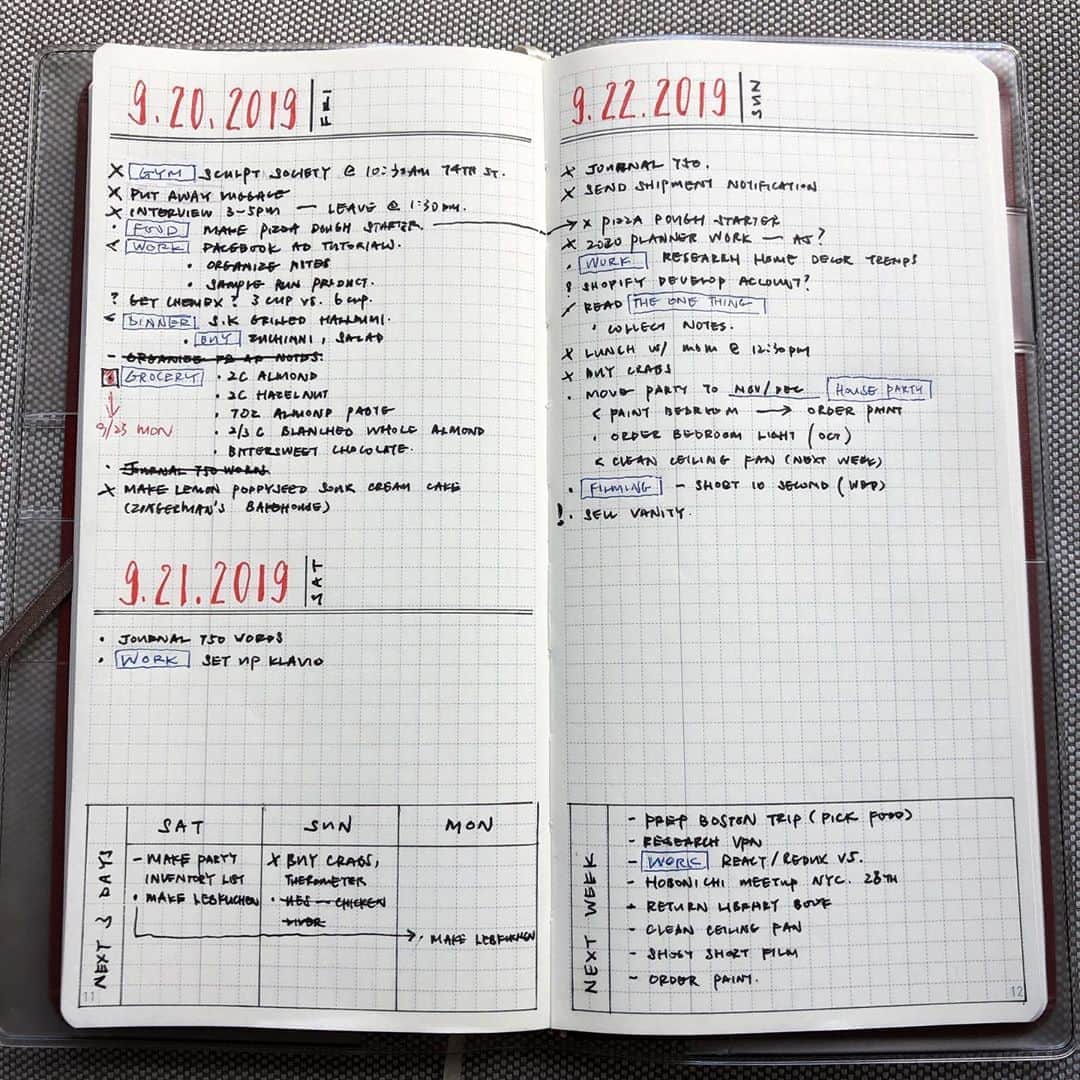 9.20.2019 FRI
X GYM SCULPT SOCIETY @ 10:30AM 74TH ST.
X PUT AWAY LUGGAGE
X INTERVIEW 3-5PM — LEAVE @ 1:30PM.
· FOOD MAKE PIZZA DOUGH STARTER.
< WORK FACEBOOK AD TUTORIALS.
• ORGANIZE NOTES
• SAMPLE RUN PRODUCT.
? GET CHEMEX? 3 CUP VS. 6 CUP.
< DINNER S.K GRILLED HALLOUMI.
• BUY ZUCHINNI, SALAD
- ORGANIZE FB AD NOTES.
GROCERY • 2C ALMOND
• 2C HAZELNUT
• 7OZ ALMOND PASTE
9/23 MON • 2/3 C BLANCHED WHOLE ALMOND
• BITTERSWEET CHOCOLATE.
· JOURNAL 750 WORDS
X MAKE LEMON POPPYSEED SOUR CREAM CAKE
(ZINGERMAN'S BAKEHOUSE)
9.21.2019 SAT
• JOURNAL 750 WORDS
• WORK SET UP KLAVIO
NEXT 3 DAYS
SAT
- MAKE PARTY
INVENTORY LIST
• MAKE LEBKUCHEN
SUN
X BUY CRABS,
THERMOMETER
• CHICKEN
LIVER
MON
• MAKE LEBKUCHEN
11
9.22.2019 SUN
X JOURNAL 750.
X SEND SHIPMENT NOTIFICATION
X PIZZA DOUGH STARTER
X 2020 PLANNER WORK — A5?
• WORK RESEARCH HOME DECOR TRENDS
? SHOPIFY DEVELOP ACCOUNT?
/ READ THE ONE THING
• COLLECT NOTES.
X LUNCH W/ MOM @ 12:30PM
X BUY CRABS
• MOVE PARTY TO NOV/DEC HOUSE PARTY
< PAINT BEDROOM → ORDER PAINT
• ORDER BEDROOM LIGHT (OCT)
< CLEAN CEILING FAN (NEXT WEEK)
• FILMING - SHORT 10 SECOND (WED)
!• SELL VANITY.
NEXT WEEK
- PREP BOSTON TRIP (PICK FOOD)
- RESEARCH VPN
- WORK REACT/REDUX VS.
- HOBONICHI MEETUP NYC. 28TH
- RETURN LIBRARY BOOK
- CLEAN CEILING FAN
- SHOOT SHORT FILM
- ORDER PAINT.
12